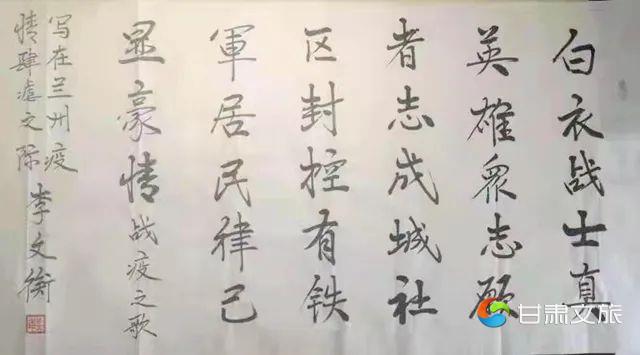 白衣战士真
英雄众志願
者志成城社
区封控有铁
軍居民律己
显豪情战疫之歌
写在兰州疫
情肆虐之际
李文衡
甘肃文旅